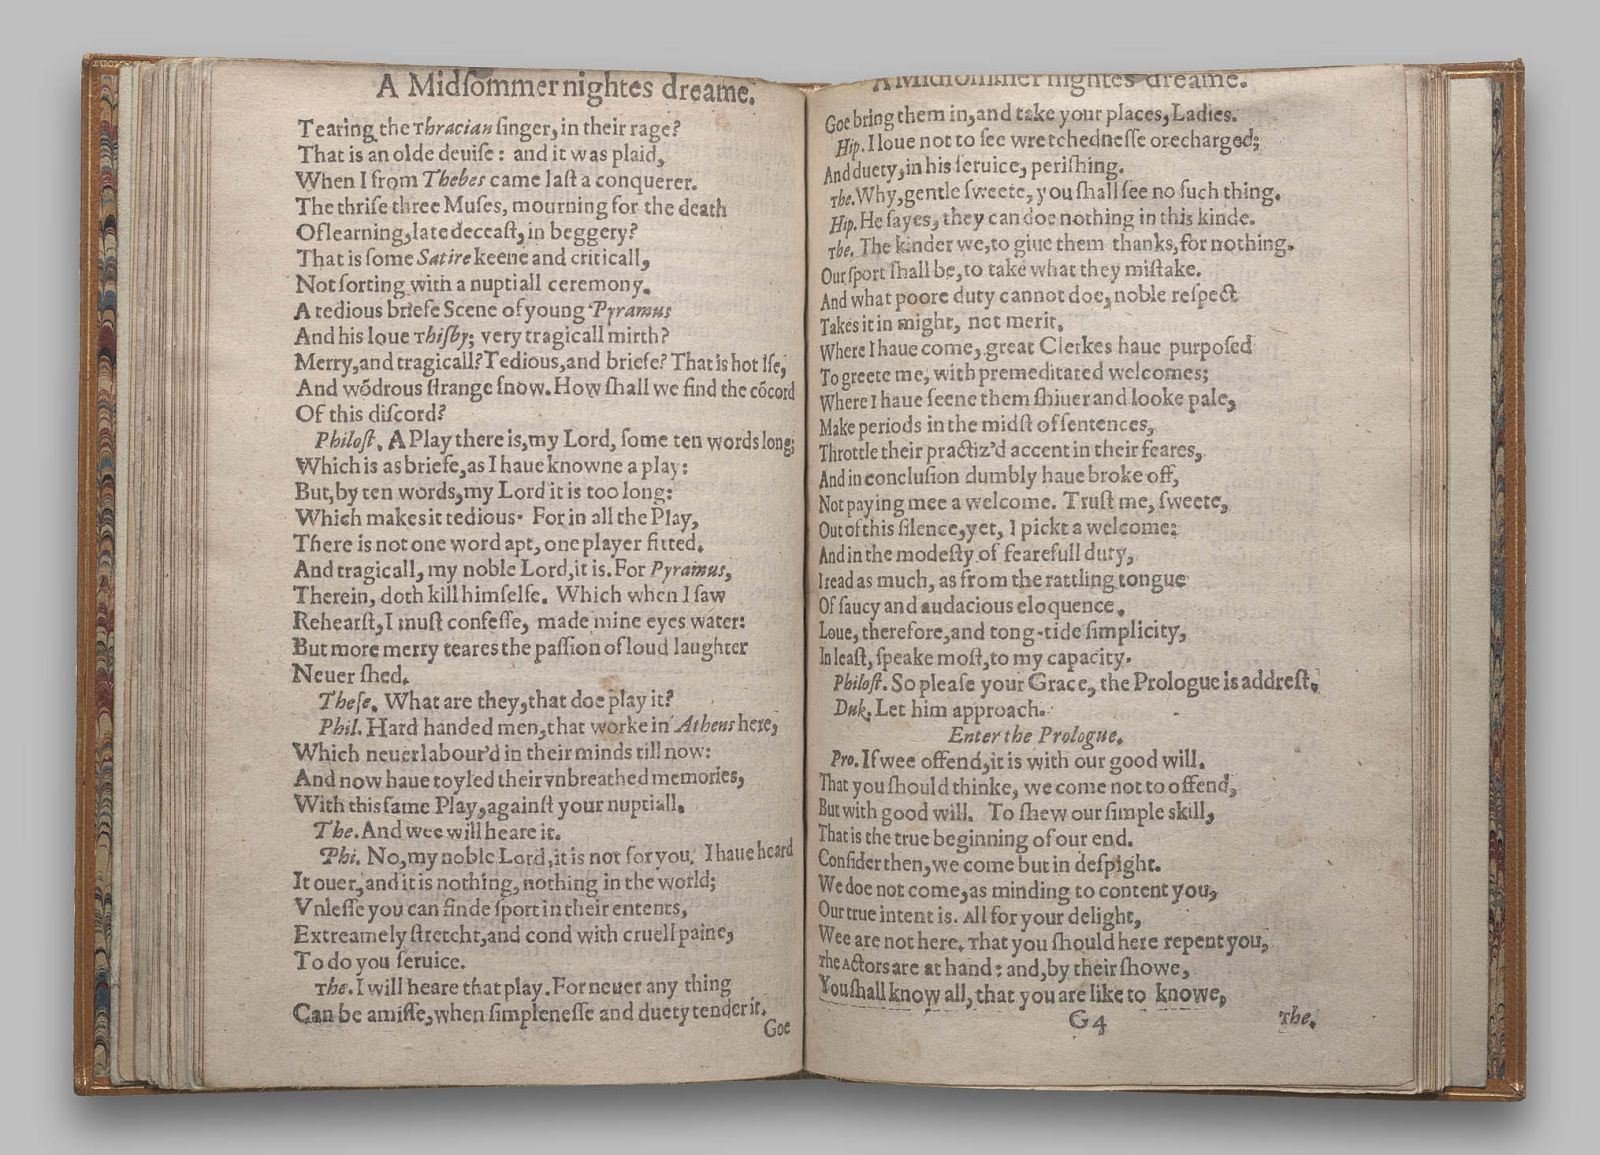 A Midſommer nightes dreame.
Tearing the Thracian ſinger, in their rage?
That is an olde deuiſe: and it was plaid,
When I from Thebes came laſt a conquerer.
The thriſe three Muſes, mourning for the death
Of learning, late deceaſt, in beggery?
That is ſome Satire keene and criticall,
Not ſorting with a nuptiall ceremony.
A tedious briefe Scene of young Pyramus
And his loue Thiſby; very tragicall mirth?
Merry, and tragicall? Tedious, and briefe? That is hot Iſe,
And wōdrous ſtrange ſnow. How ſhall we find the cōcord
Of this diſcord?
Philoſt. A Play there is, my Lord, ſome ten words long;
Which is as briefe, as I haue knowne a play:
But, by ten words, my Lord it is too long:
Which makes it tedious. For in all the Play,
There is not one word apt, one player fitted.
And tragicall, my noble Lord, it is. For Pyramus,
Therein, doth kill himſelfe. Which when I ſaw
Rehearſt, I muſt confeſſe, made mine eyes water:
But more merry teares the paſſion of loud laughter
Neuer ſhed.
Theſe. What are they, that doe play it?
Phil. Hard handed men, that worke in Athens here,
Which neuer labour'd in their minds till now:
And now haue toyled their vnbreathed memories,
With this ſame Play, againſt your nuptiall.
The. And wee will heare it.
Phi. No, my noble Lord, it is not for you. I haue heard
It ouer, and it is nothing, nothing in the world;
Vnleſſe you can finde ſport in their entents,
Extreamely ſtretcht, and cond with cruell paine,
To do you ſeruice.
The. I will heare that play. For neuer any thing
Can be amiſſe, when ſimpleneſſe and duety tender it.
Goe
A Midſommer nightes dreame.
Goe bring them in, and take your places, Ladies.
Hip. I loue not to ſee wretchedneſſe orecharged;
And duety, in his ſeruice, periſhing.
The. Why, gentle ſweete, you ſhall ſee no ſuch thing.
Hip. He ſayes, they can doe nothing in this kinde.
The. The kinder we, to giue them thanks, for nothing.
Our ſport ſhall be, to take what they miſtake.
And what poore duty cannot doe, noble reſpect
Takes it in might, not merit.
Where I haue come, great Clerkes haue purpoſed
To greete me, with premeditated welcomes;
Where I haue ſeene them ſhiuer and looke pale,
Make periods in the midſt of ſentences,
Throttle their practiz'd accent in their feares,
And in concluſion dumbly haue broke off,
Not paying mee a welcome. Truſt me, ſweete,
Out of this ſilence, yet, I pickt a welcome:
And in the modeſty of fearefull duty,
I read as much, as from the rattling tongue
Of ſaucy and audacious eloquence.
Loue, therefore, and tong-tide ſimplicity,
In leaſt, ſpeake moſt, to my capacity.
Philoſt. So pleaſe your Grace, the Prologue is addreſt.
Duk. Let him approach.
Enter the Prologue.
Pro. If wee offend, it is with our good will.
That you ſhould thinke, we come not to offend,
But with good will. To ſhew our ſimple skill,
That is the true beginning of our end.
Conſider then, we come but in deſpight.
We doe not come, as minding to content you,
Our true intent is. All for your delight,
Wee are not here. That you ſhould here repent you,
The Actors are at hand: and, by their ſhowe,
You ſhall know all, that you are like to knowe,
G4
The.